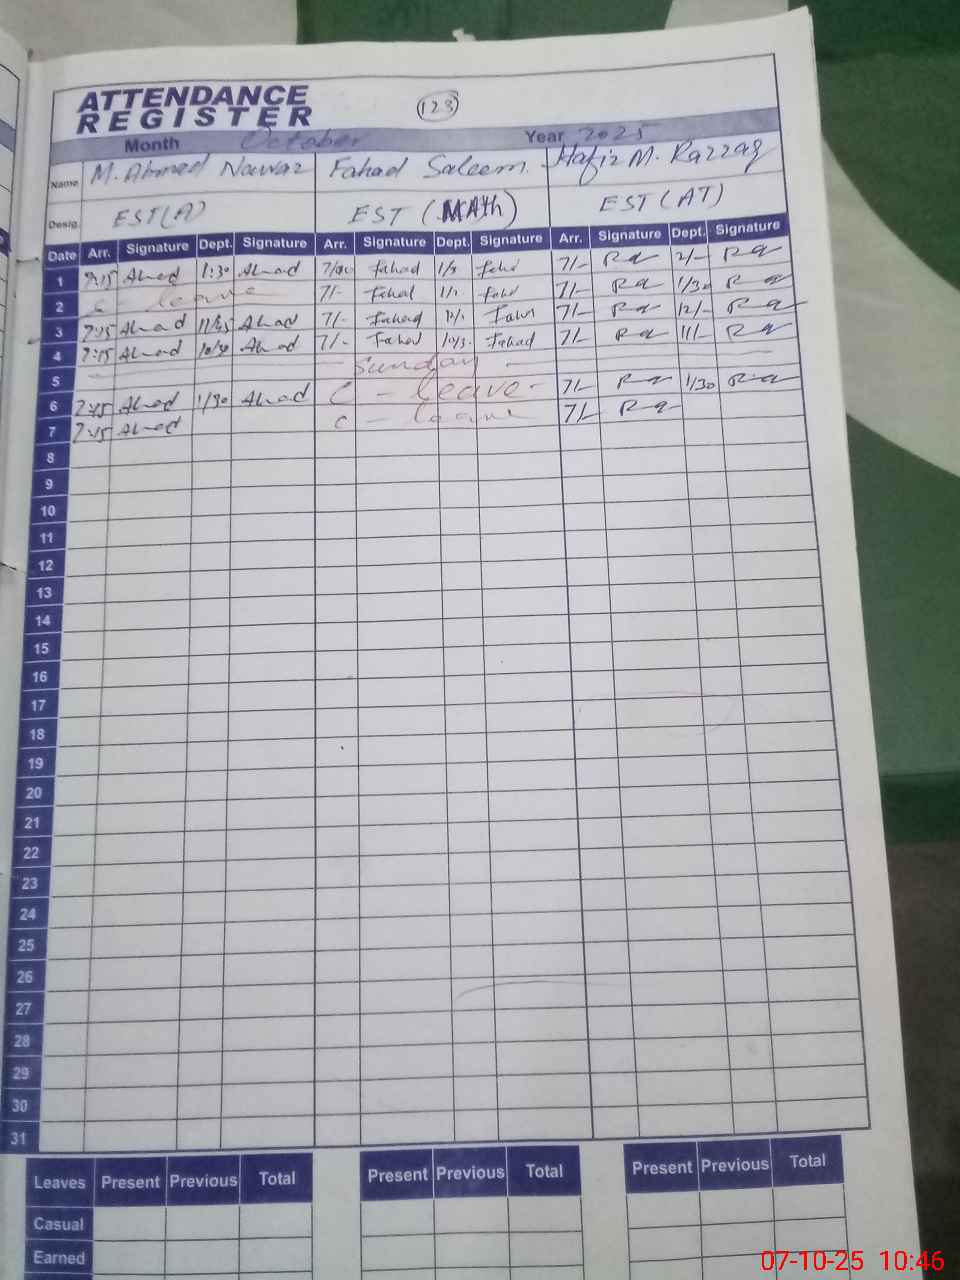 ATTENDANCE
REGISTER
123
Month October Year 2025
Name M. Ahmed Nawaz Fahad Saleem Hafiz M. Razzaq
Desig. EST(A) EST (MAth) EST (AT)
Date Arr. Signature Dept. Signature Arr. Signature Dept. Signature Arr. Signature Dept. Signature
1 Ahmad 1:30 Ahmad 7/00 Fahad Fahd 7/- 2/-
2 C - leave 7/- Fahad 1/- Fahd 7/- 1/30
3 7:15 Ahmad 11/45 Ahmad 7/- Fahad Fahd 7/- 12/-
4 7:15 Ahmad 10/30 Ahmad 7/- Fahad Fahad 7/- 11/-
5 - Sunday -
6 7:45 Ahmad 1/30 Ahmad C - leave - 7/- 1/30
7 7:45 Ahmad C - leave 7/-
8
9
10
11
12
13
14
15
16
17
18
19
20
21
22
23
24
25
26
27
28
29
30
31
Leaves Present Previous Total Present Previous Total Present Previous Total
Casual
Earned
07-10-25 10:46